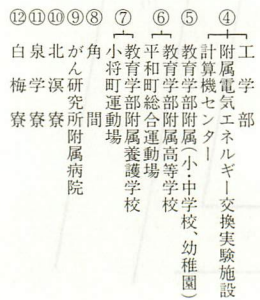 ④工学部
附属電気エネルギー変換実験施設
計算機センター
⑤教育学部附属(小・中学校、幼稚園)
⑥教育学部附属高等学校
平和町総合運動場
⑦教育学部附属養護学校
小将町運動場
⑧角間
⑨がん研究所附属病院
⑩北溟寮
⑪泉学寮
⑫白梅寮